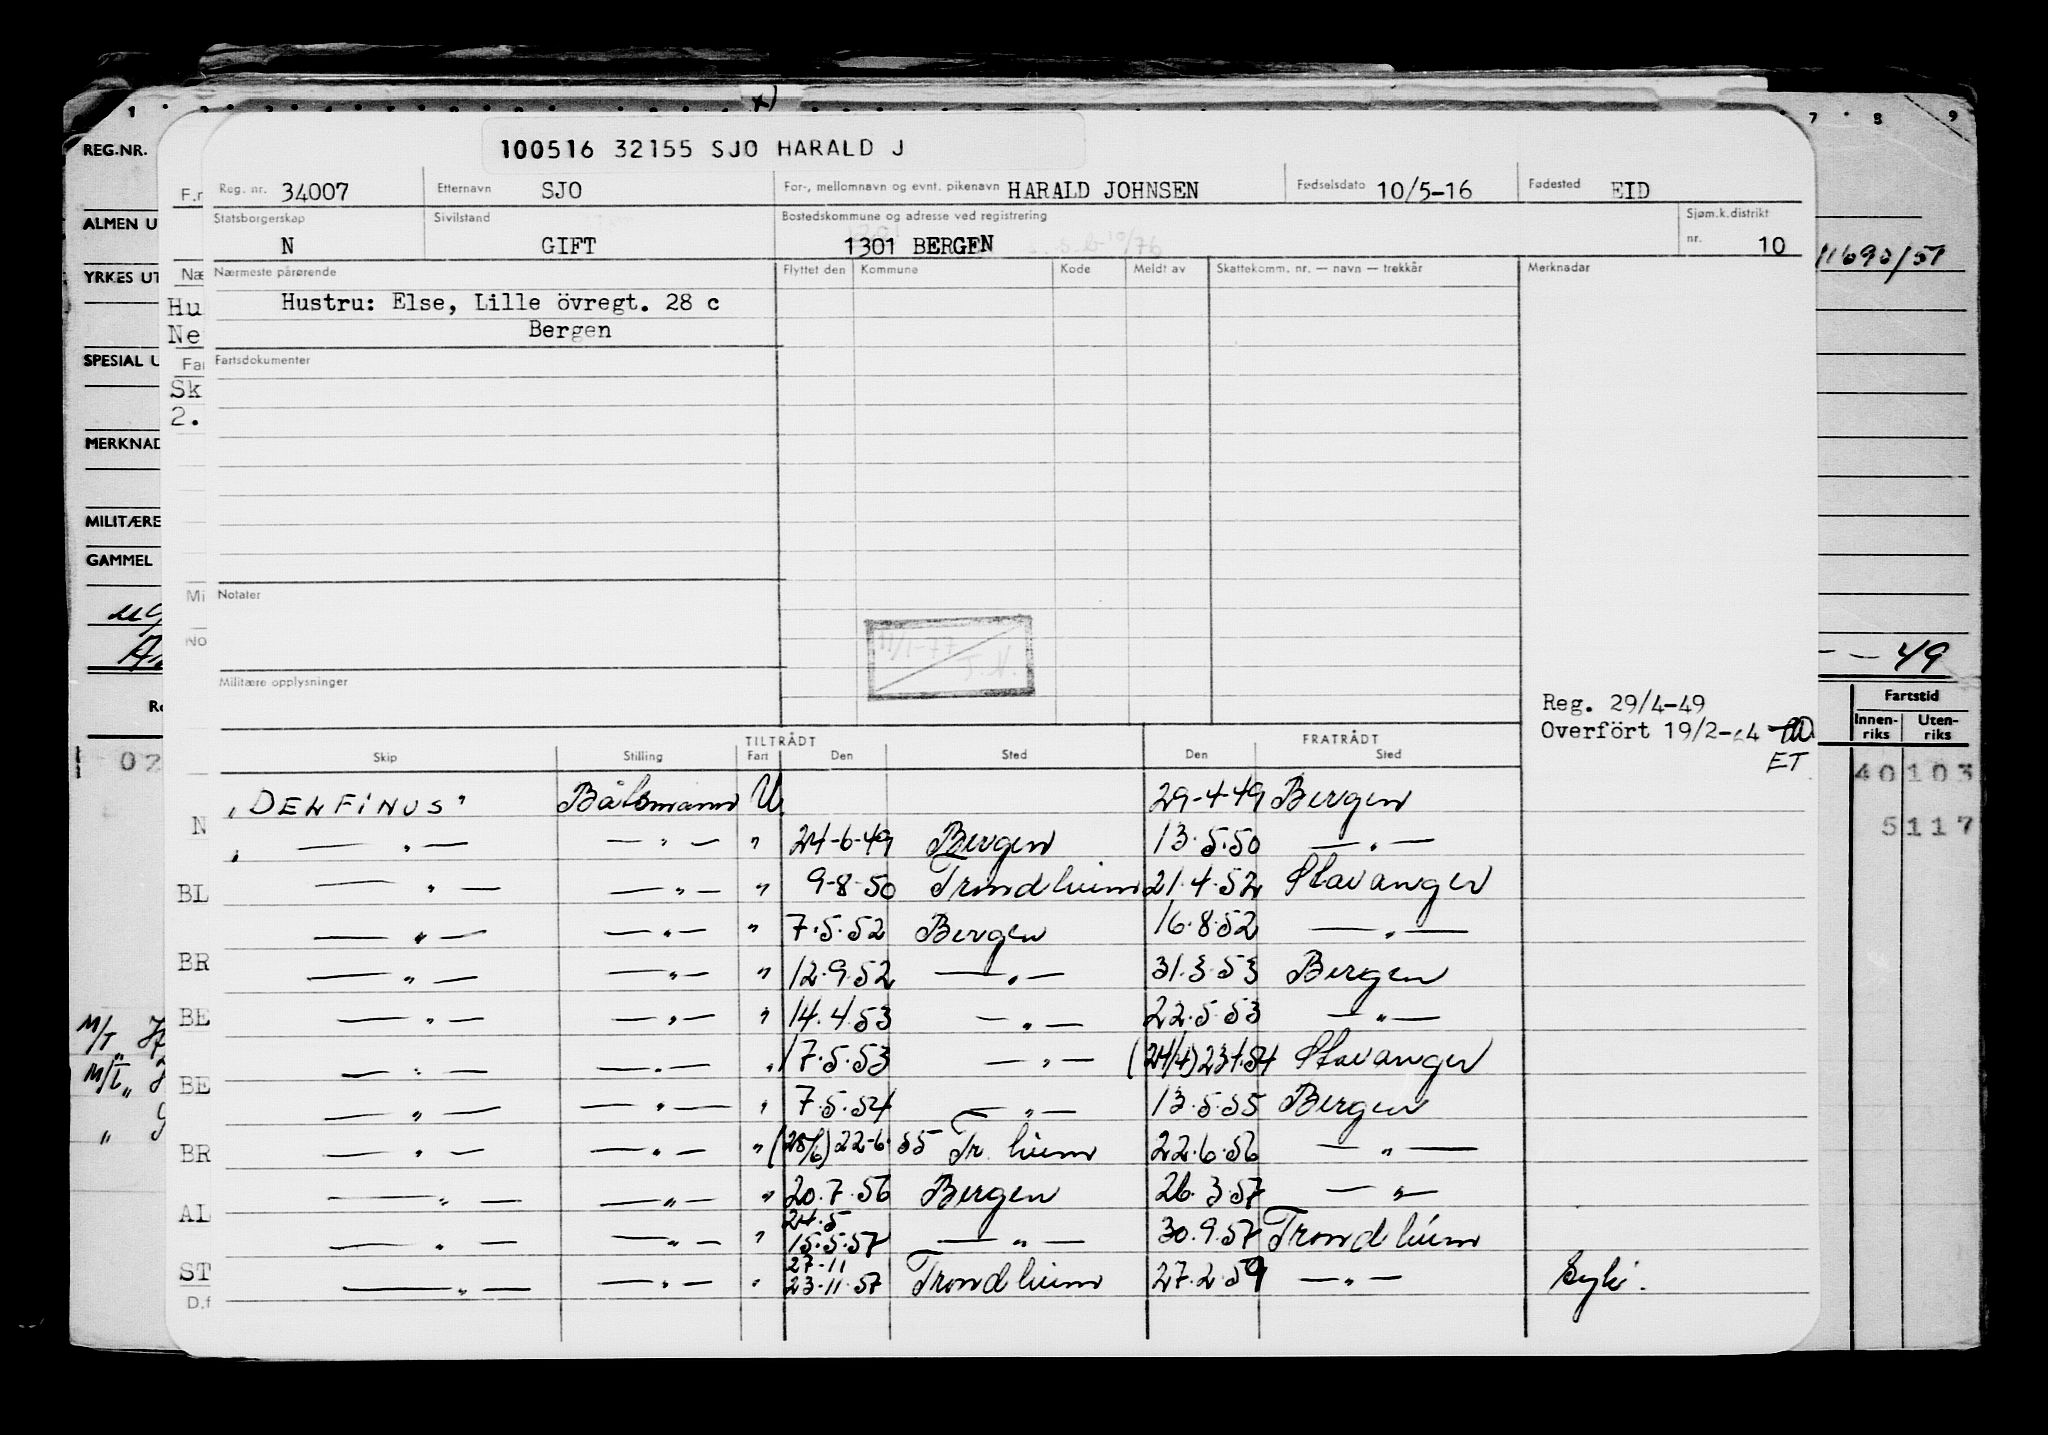 100516 32155 SJO HARALD J
REG.NR.
Reg. nr. 34007 Etternavn SJO For-, mellomnavn og evnt. pikenavn HARALD JOHNSEN Fødselsdato 10/5-16 Fødested EID
Statsborgerskap Sivilstand Bostedskommune og adresse ved registrering Sjøm.k.distrikt
N GIFT 1301 BERGEN nr. 10
ALMEN U
YRKES UT
11690/51
Nærmeste pårørende Flyttet den Kommune Kode Meldt av Skattekomm. nr. — navn — trekkår Merknadar
Hustru: Else, Lille övregt. 28 c
Bergen
Hu
Ne
SPESIAL U
Fartsdokumenter
Sk
2.
MERKNAD
MILITÆRE
GAMMEL
Notater
11/1-77
J.N.
- - 49
Militære opplysninger
Reg. 29/4-49
Overfört 19/2-64
ET
Fartstid
Innen-riks Uten-riks
40 103
5 117
02
TILTRÅDT FRATRÅDT
Skip Stilling Fart Den Sted Den Sted
"DELFINUS" Båtsmann U. 29-4-49 Bergen
— " — — " — " 24-6-49 Bergen 13.5.50 — " —
— " — — " — " 9-8-50 Trondheim 21.4.52 Stavanger
— " — — " — " 7.5.52 Bergen 16.8.52 — " —
— " — — " — " 12.9.52 — " — 31.3.53 Bergen
— " — — " — " 14.4.53 — " — 22.5.53 — " —
— " — — " — " 17.5.53 — " — (24/4) 23.4.54 Stavanger
— " — — " — " 7.5.54 — " — 13.5.55 Bergen
— " — — " — " (28/6) 22-6-55 Tr.heim 22.6.56 — " —
— " — — " — " 20.7.56 Bergen 26.3.57 — " —
24.5
— " — — " — " 15.5.57 — " — 30.9.57 Trondheim
27-11
— " — — " — " 23-11-57 Trondheim 27.2.59 — " — Syk.
N
BL
BR
BE
BE
BR
AL
ST
D.f
M/T
M/T